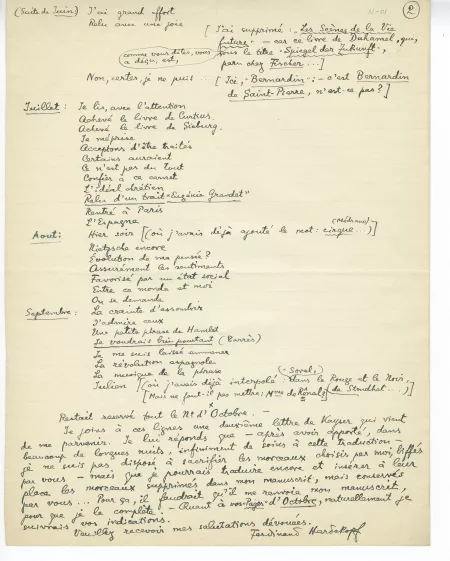 (Suite de Juin) J'ai grand effort
Relu avec une joie
②
[J'ai supprimé: "Les Scènes de la Vie
future" – car ce livre de Duhamel, que,
comme vous dites, vous
a déçu, est,
sous le titre "Spiegel der Zukunft",
paru chez Fischer...]
Non, certes, je ne puis : [Ici, "Bernardin" : – c'est Bernardin
de Saint-Pierre, n'est-ce pas?]
Juillet : Je lis, avec l'attention
Achevé le livre de Curtius.
Achevé le livre de Sieburg.
Je méprise
Acceptons d'être traités
Certains auraient
Ce n'est pas du tout
Confier à ce carnet
L'idéal chrétien
Relu d'un trait "Eugénie Grandet"
Rentré à Paris
L'Espagne
Août: Hier soir [(où j'avais déjà ajouté le mot: cirque...)]
Nietzsche encore
Évolution de ma pensée?
Assurément les sentiments
Favorisé par un état social
Entre ce monde et moi
On se demande
Septembre: La crainte d'assombrir
J'admire ceux
Une petite phrase de Hamlet
Je voudrais bien pourtant (Barrès)
Je me suis laissé emmener
La révolution espagnole
La musique de la phrase
(-Sorel,)
Julien [(où j'avais déjà interpolé: dans le Rouge et le Noir,
[Mais ne faut-il pas mettre: Mme de Rênal?) de Stendhal...)]
Restait réservé tout le N° d'Octobre. –
Je joins à ces lignes une deuxième lettre de Kayser qui vient
de me parvenir. Je lui réponds que – après avoir apporté, dans
beaucoup de longues nuits, infiniment de soins à cette traduction –
je ne suis pas disposé à sacrifier les morceaux choisis par moi, biffés
par vous – mais que je pourrais traduire encore et insérer à leur
place les morceaux supprimés dans mon manuscrit, mais conservés
par vous. – Pour ça, il faudrait qu'il me renvoie mon manuscrit,
pour que je le complète. – Quant à vos "Pages" d'Octobre, naturellement je
suivrais vos indications.
Veuillez recevoir mes salutations dévouées.
Ferdinand Hardekopf